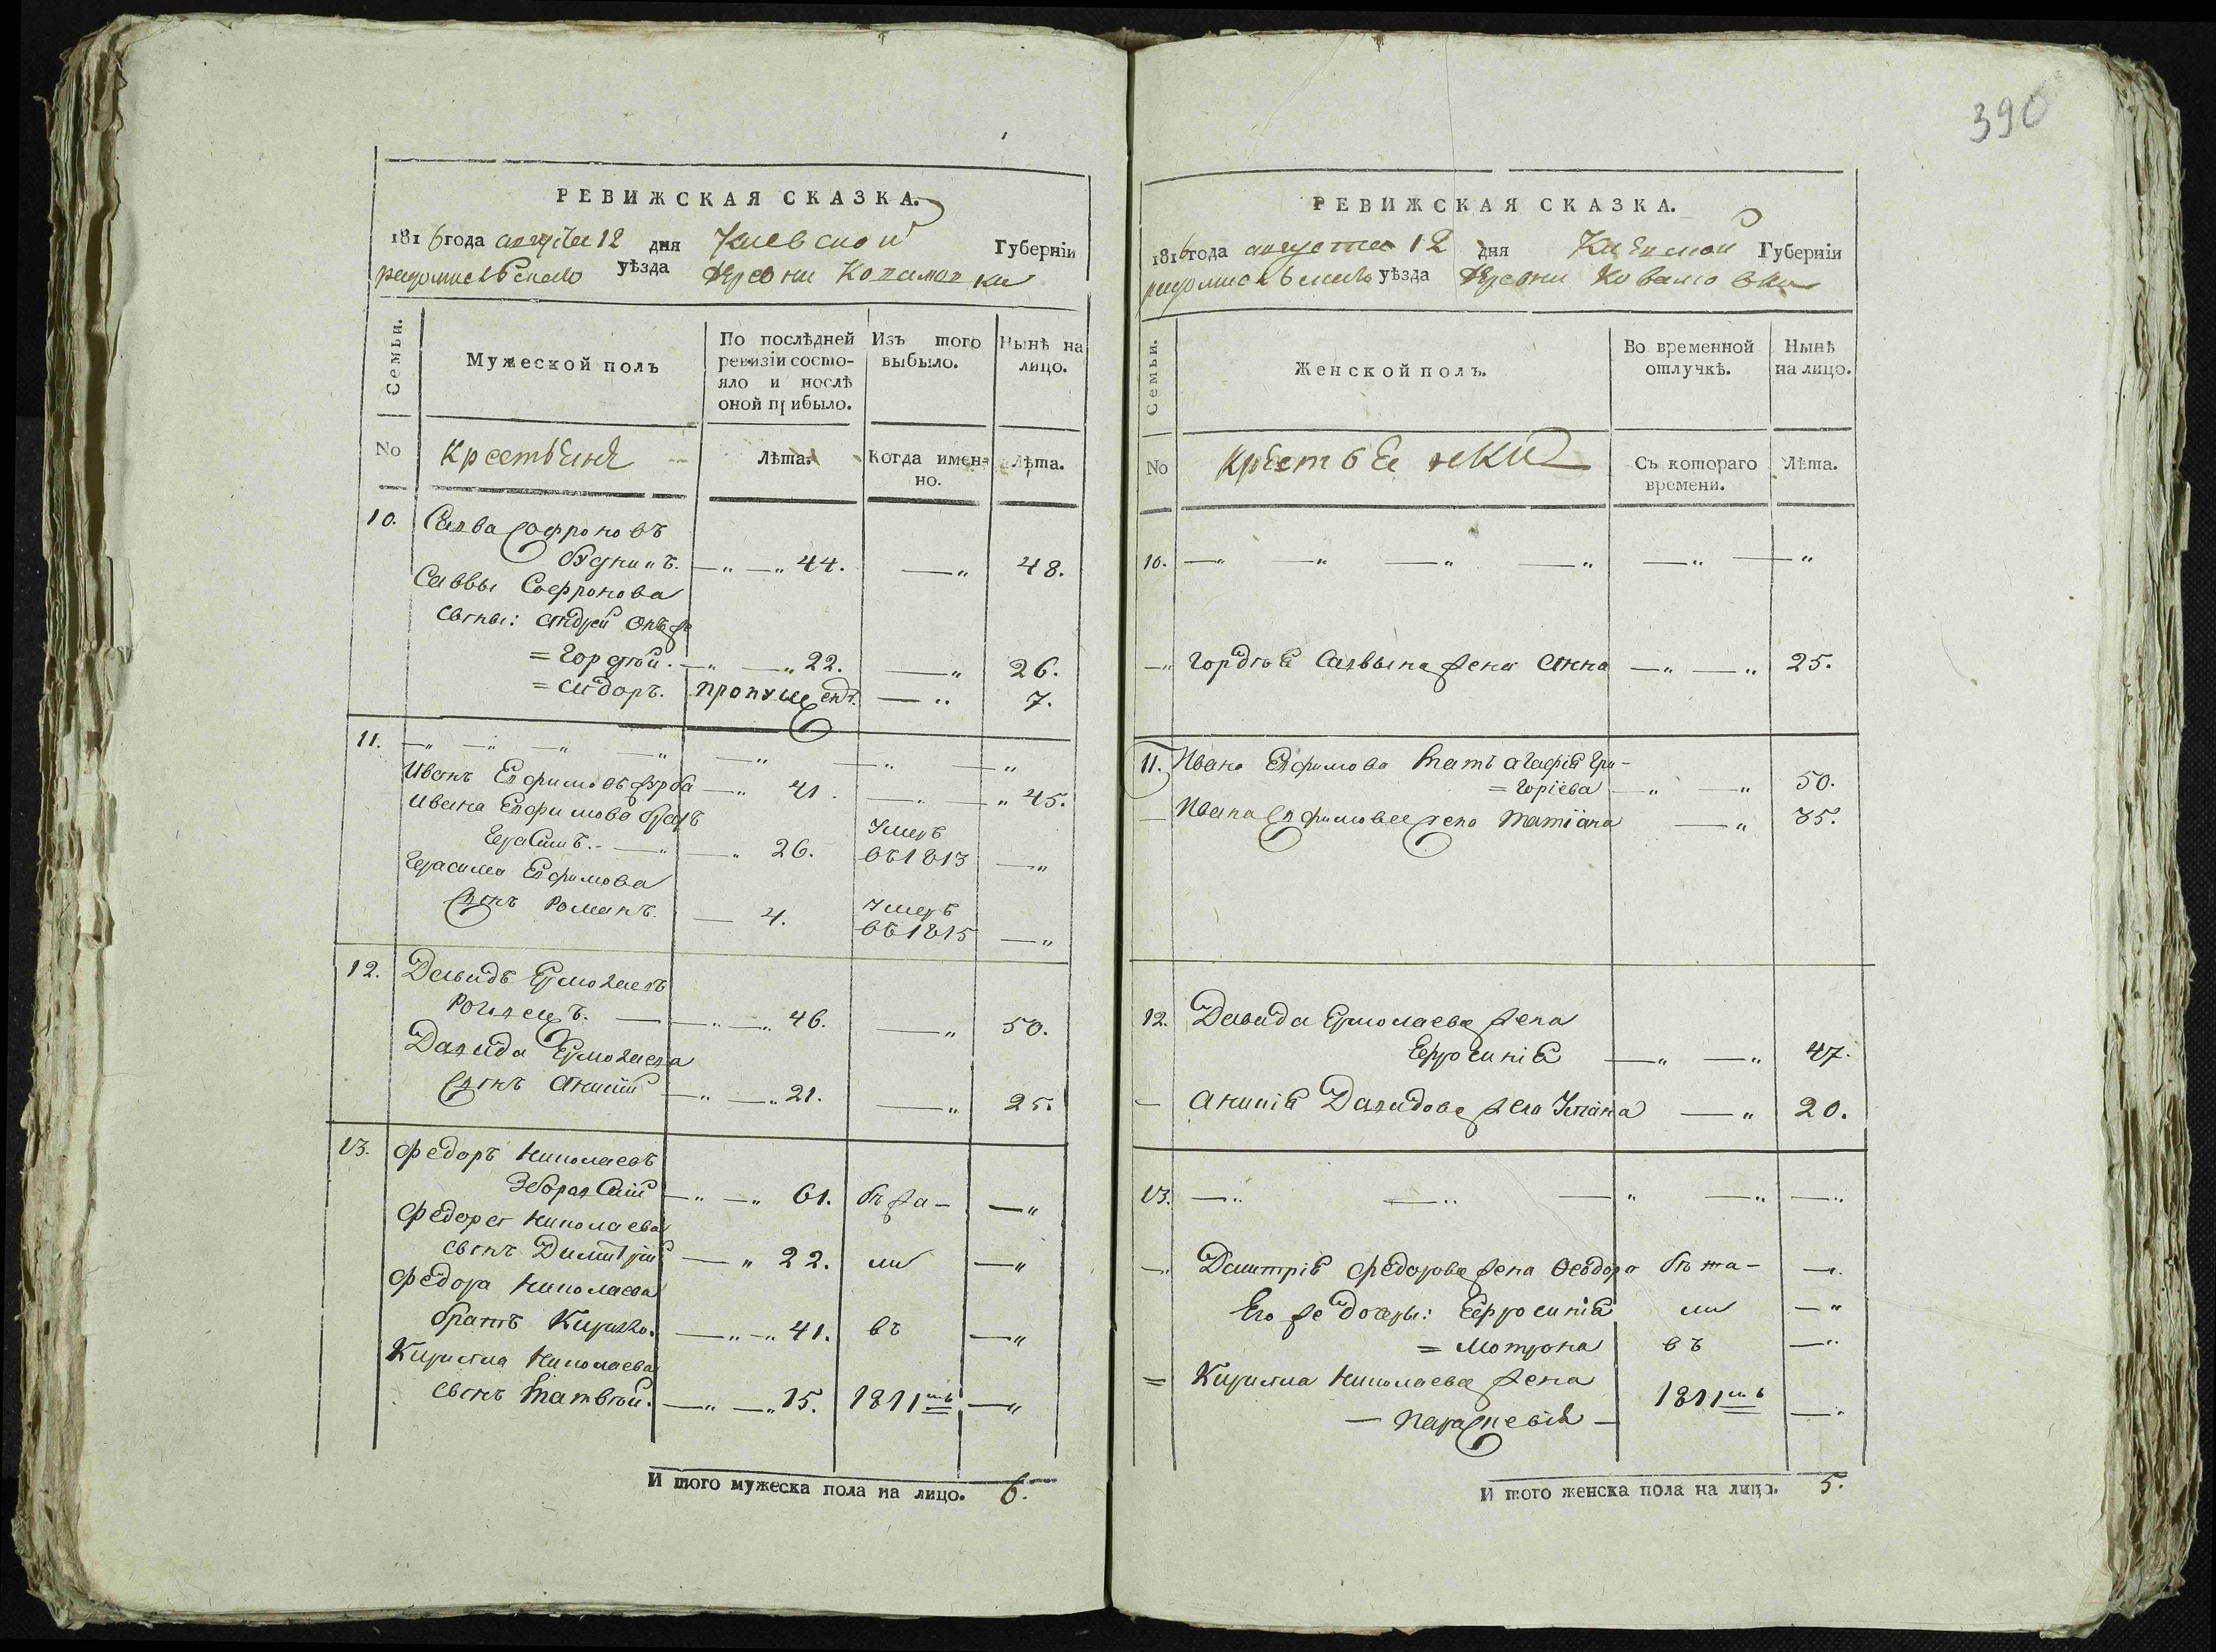 390
РЕВИЖСКАЯ СКАЗКА.
1816 года августа 12 дня Киевской Губерніи
радомисльскаго уѣзда Деревни Коваловки
Семьи. Мужеской полъ По послѣдней ревизіи состояло и послѣ оной прибыло. Изъ того выбыло. Нынѣ на лицо.
No Крестьяне Лѣта. Когда именно. Лѣта.
10. Савва Софроновъ
44. 48.
Саввы Софронова
сыны: Андрей
= Гордѣй. 22. 26.
= Сидоръ. пропущенъ. 7.
11.
Иванъ Евфимовъ 41. 45.
Ивана Евфимова братъ
Герасимъ. 26. Умеръ въ 1813
Герасима Евфимова
сынъ Романъ. 4. Умеръ въ 1815
12. Давидъ Ермолаевъ
46. 50.
Давида Ермолаева
сынъ Ананій 21. 25.
13. Федоръ Николаевъ
61. бѣжа-
Федора Николаева
сынъ Димитрій 22. ли
Федора Николаева
братъ Кирилло. 41. въ
Кирилла Николаева
сынъ Матвѣй. 15. 1811мъ
И того мужеска пола на лицо. 6.
РЕВИЖСКАЯ СКАЗКА.
1816 года августа 12 дня Киевской Губерніи
радомисльскаго уѣзда Деревни Коваловки
Семьи. Женской полъ. Во временной отлучкѣ. Нынѣ на лицо.
No Крестьянки Съ котораго времени. Лѣта.
10.
Гордѣя Саввына жена Анна 25.
11. Ивана Евфимова мать Агафія Гри-
= горіева 50.
Ивана Евфимова жена Татіана 35.
12. Давида Ермолаева жена
Ефросинія 47.
Ананія Давидова жена Уліана 20.
13.
Дмитрія Федорова жена Феодора бѣжа-
Его же дочеры: Ефросинія ли
= Мотрона въ
= Кирилла Николаева жена
— Параскевія — 1811мъ
И того женска пола на лицо. 5.